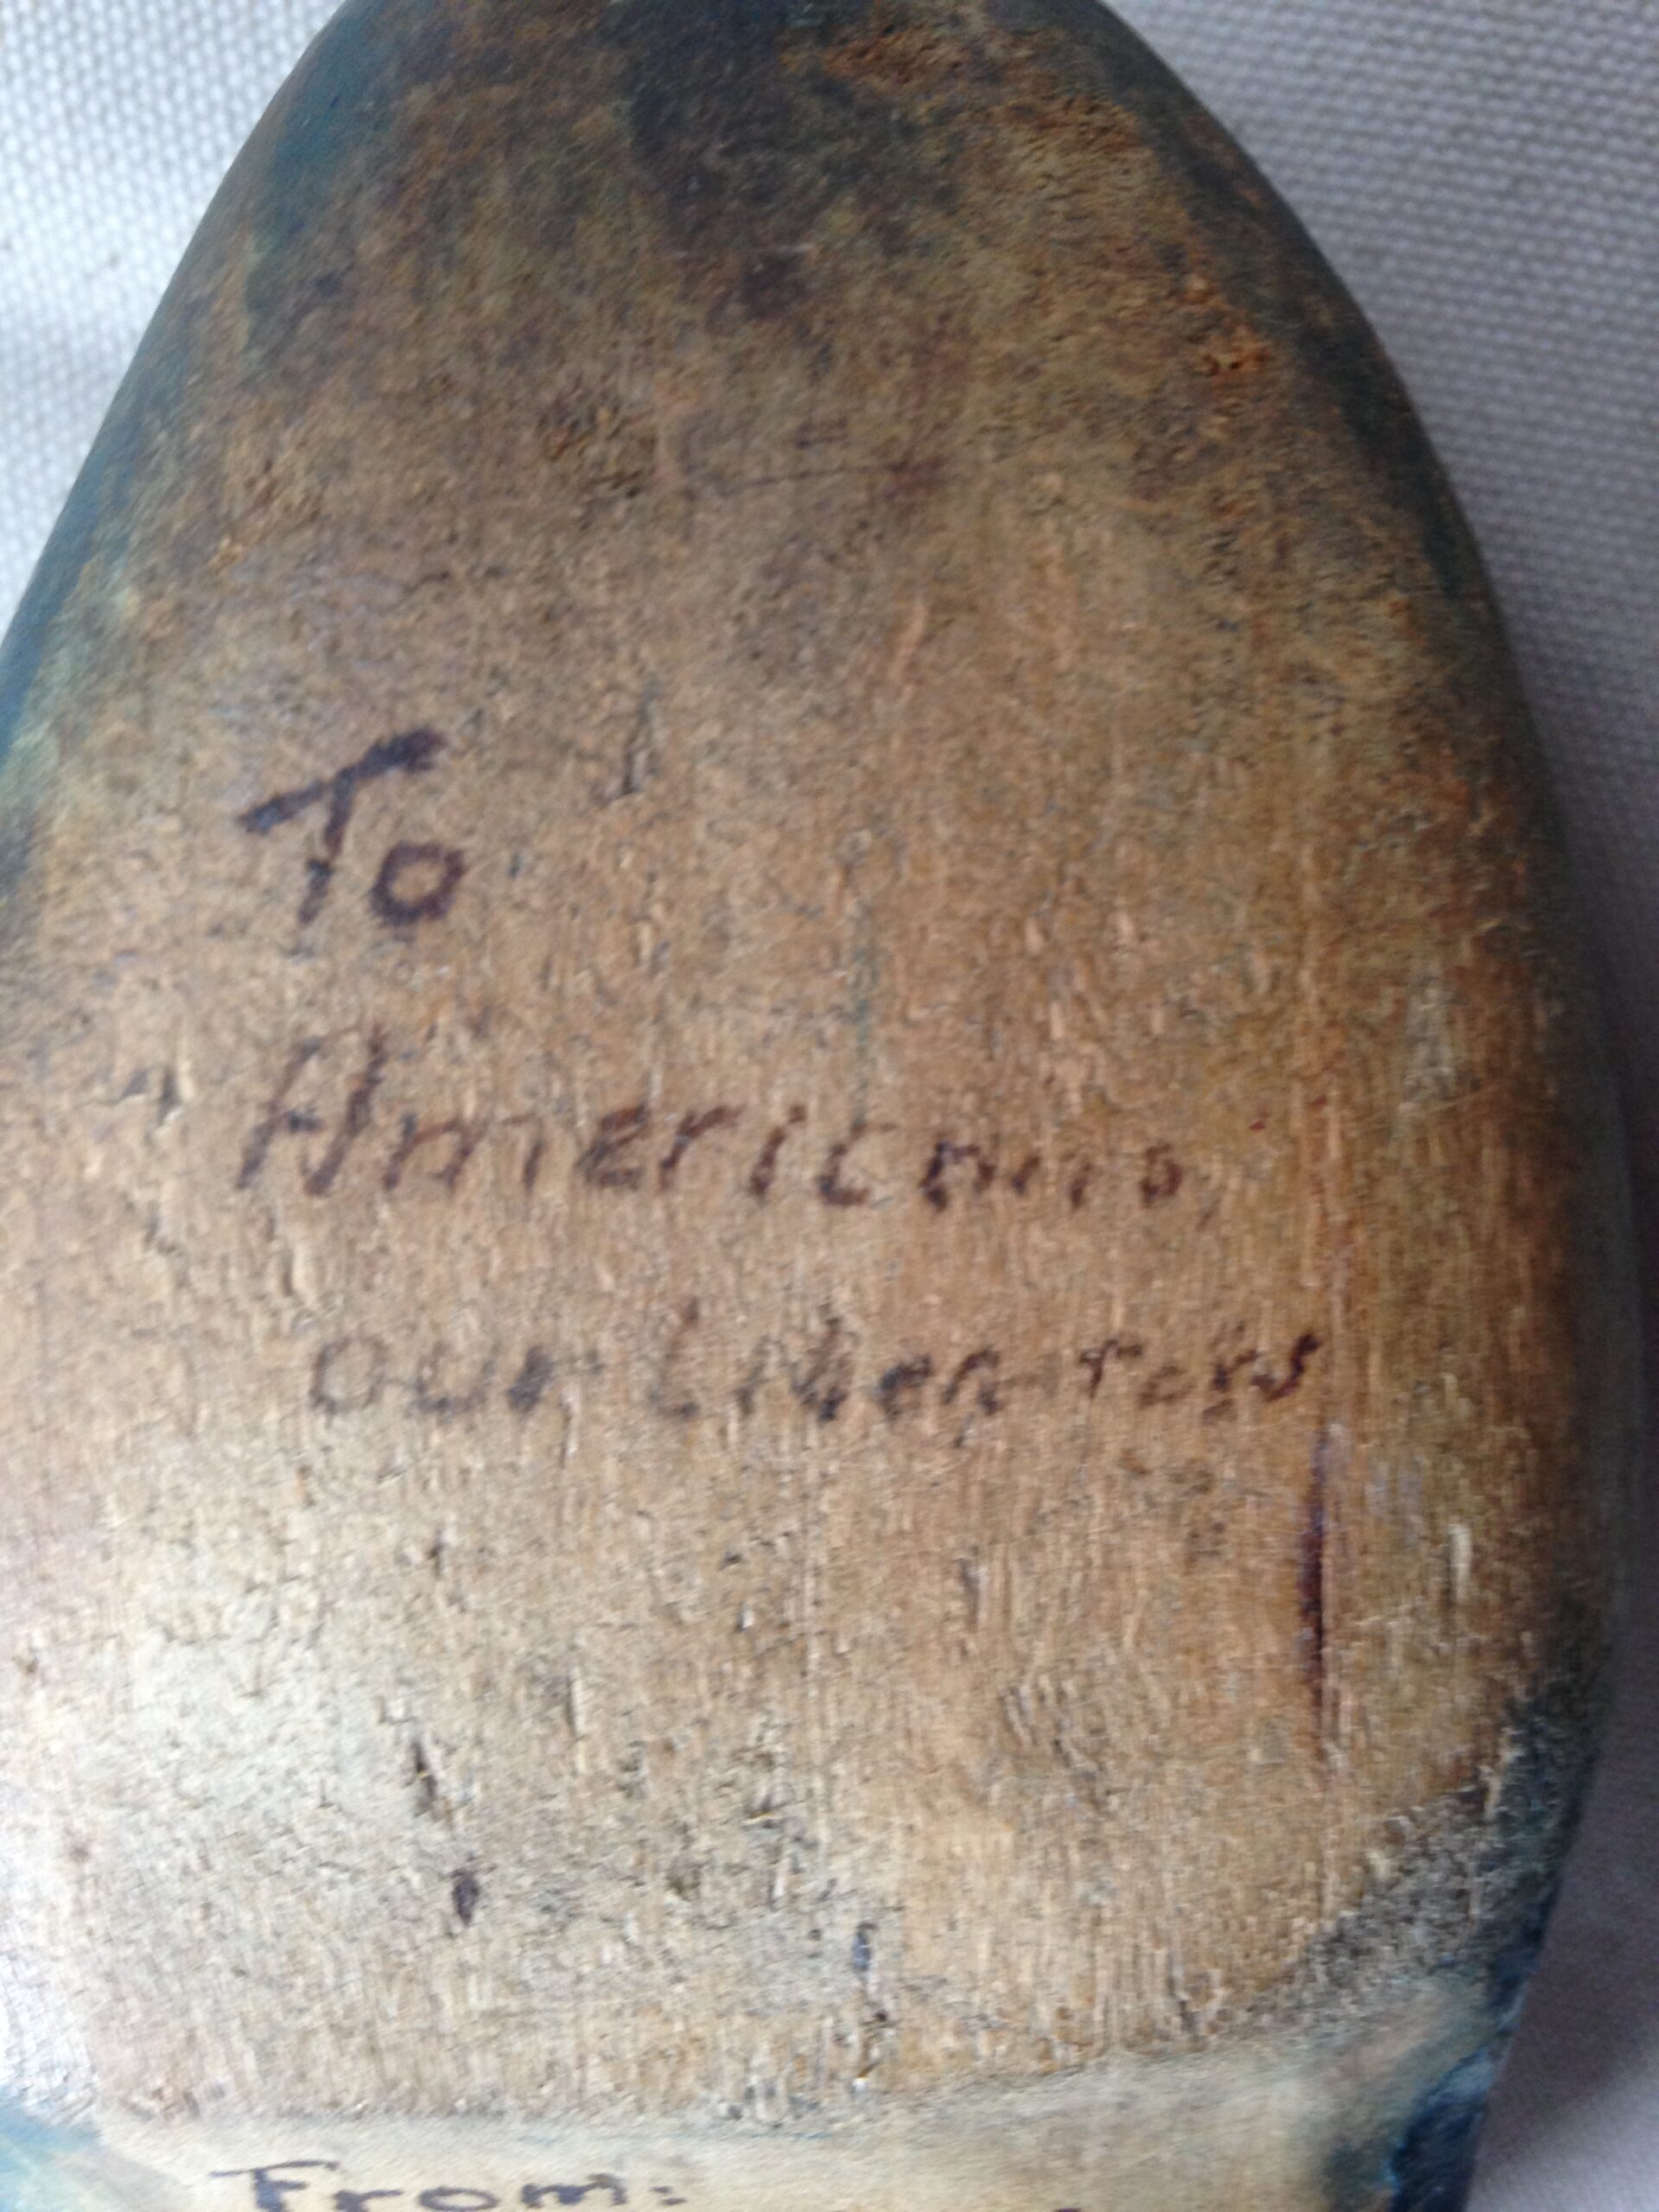 To
Americans,
our Liberators
From: